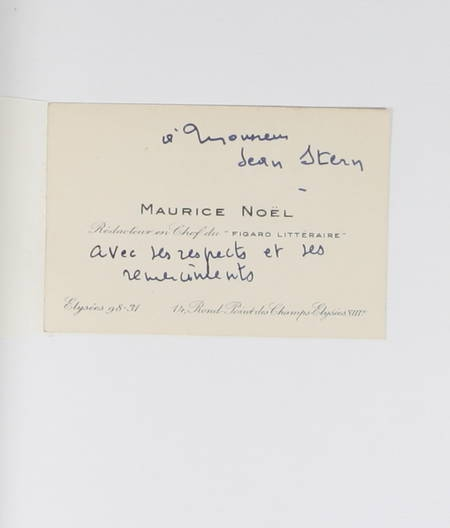 à Monsieur
Jean Stern
-
MAURICE NOËL
Rédacteur en Chef du "FIGARO LITTÉRAIRE"
avec ses respects et ses
remerciments
Elysées 98-31 14, Rond-Point des Champs-Elysées VIIIe